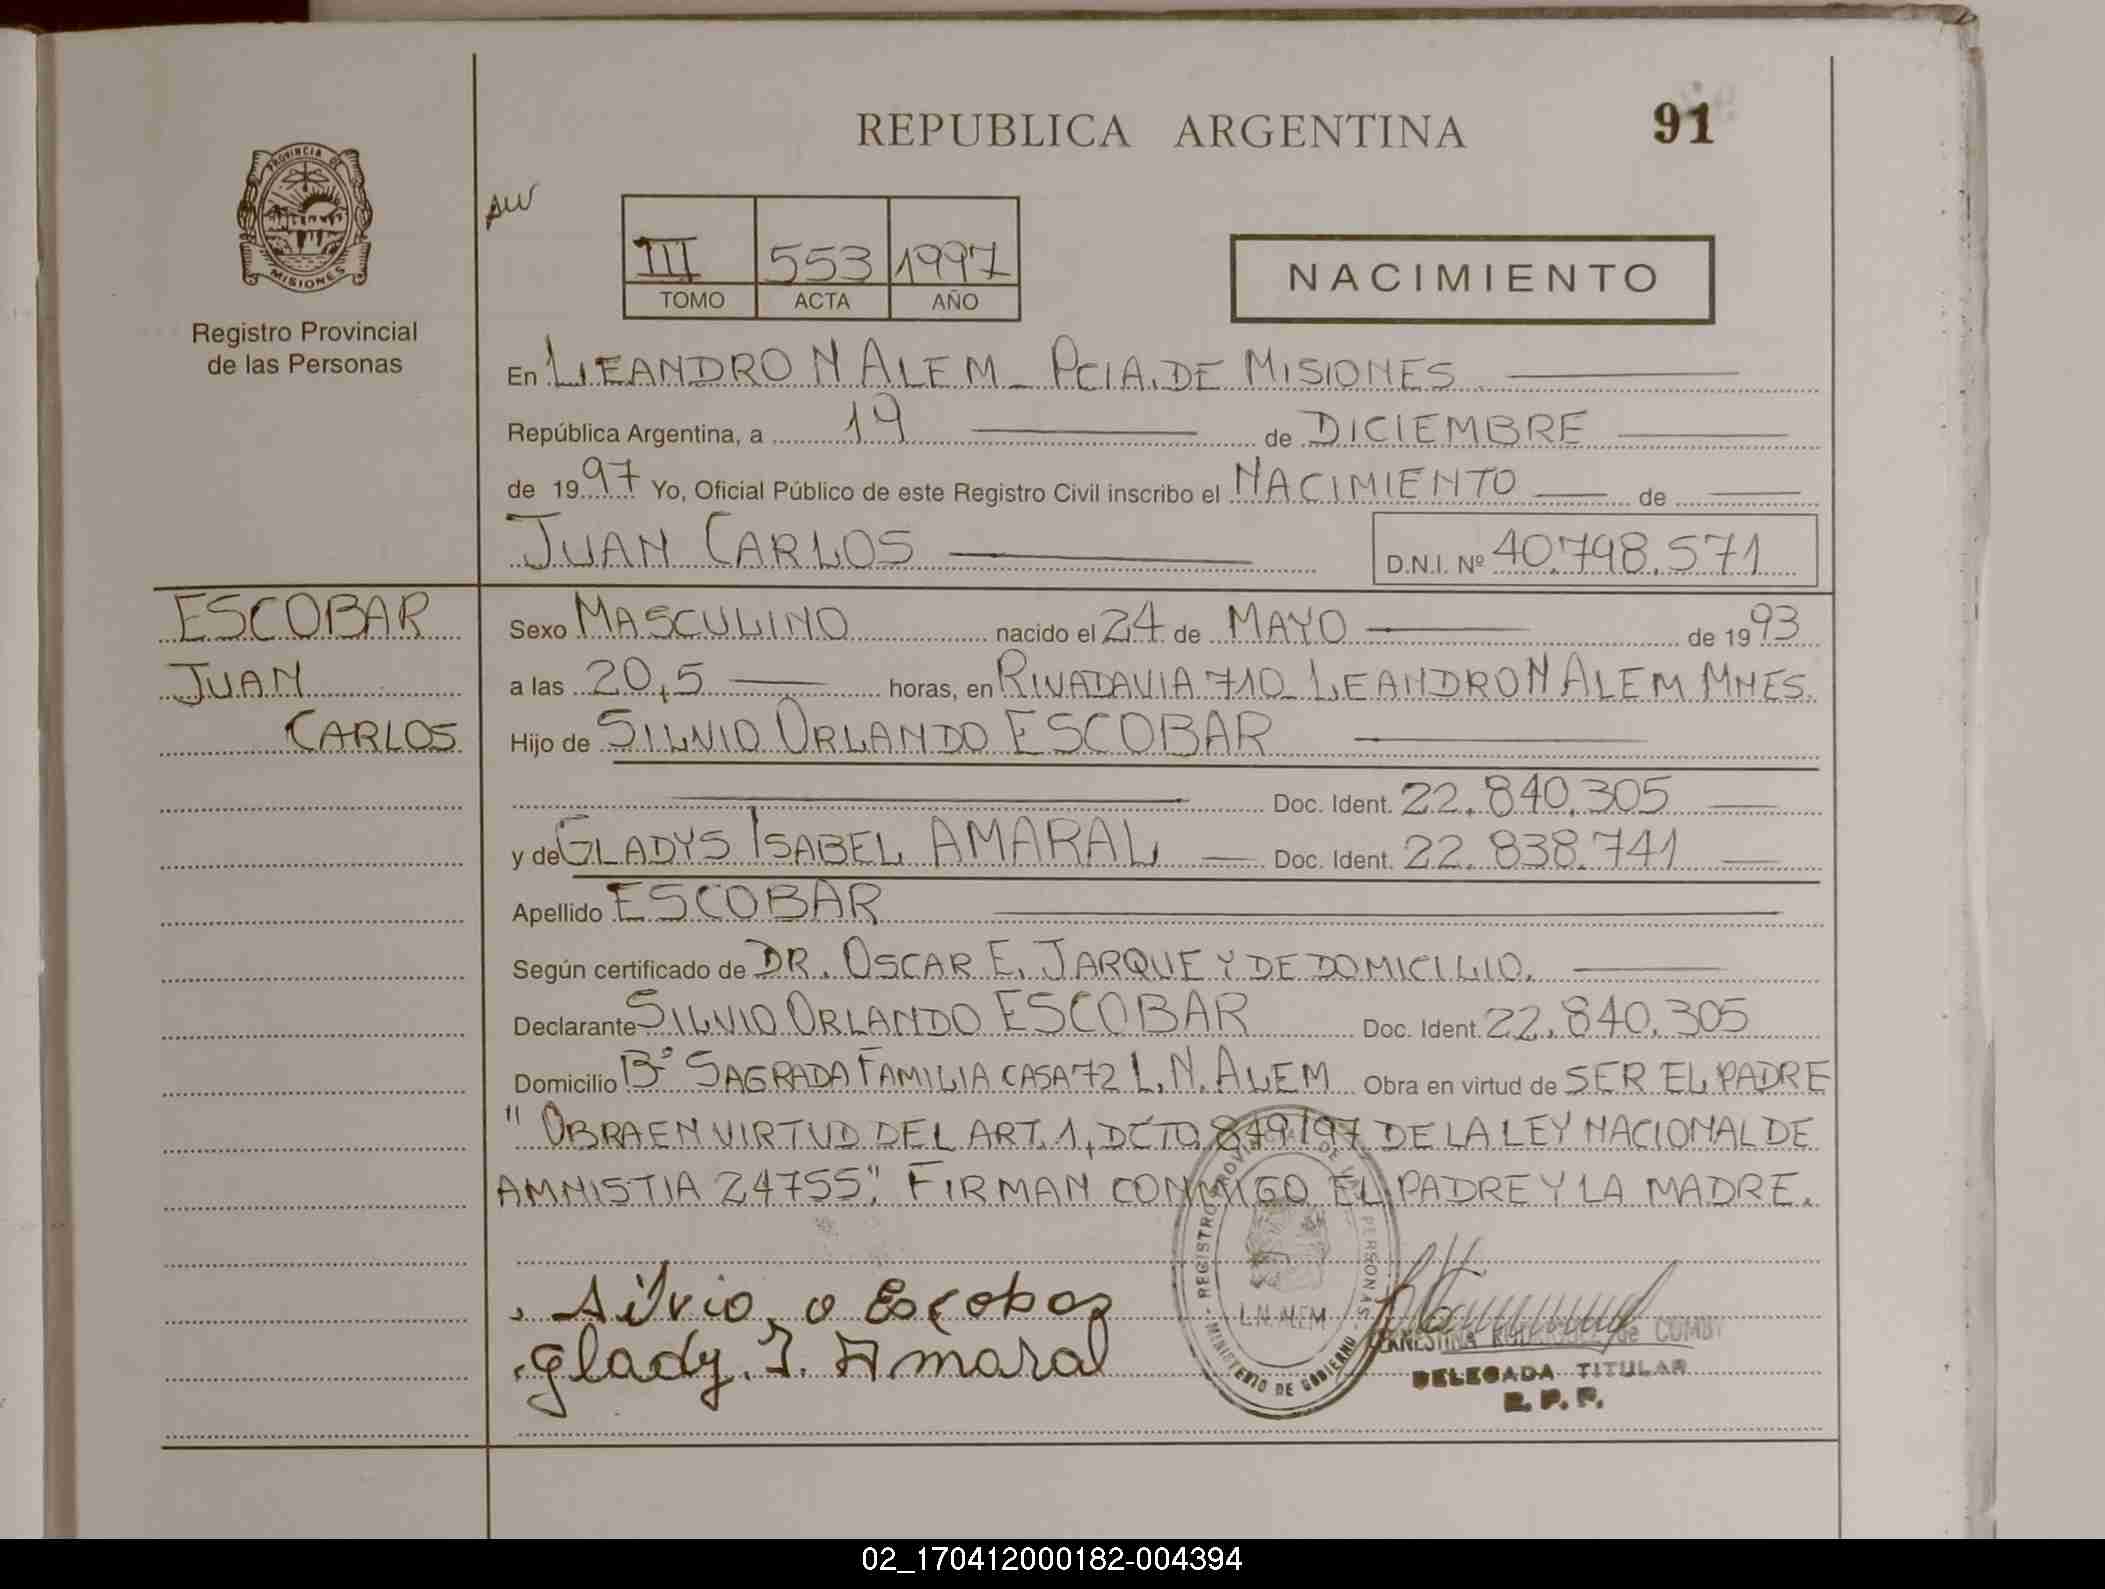 REPUBLICA ARGENTINA
91
PROVINCIA DE MISIONES
Registro Provincial
de las Personas
III 553 1997
TOMO ACTA AÑO
NACIMIENTO
En LEANDRO N ALEM - PCIA. DE MISIONES
República Argentina, a 19 de DICIEMBRE
de 1997 Yo, Oficial Público de este Registro Civil inscribo el NACIMIENTO de
JUAN CARLOS D.N.I. Nº 40.798.571
ESCOBAR
JUAN
CARLOS
Sexo MASCULINO nacido el 24 de MAYO de 1993
a las 20,5 horas, en RIVADAVIA 710 - LEANDRO N ALEM MNES.
Hijo de SILVIO ORLANDO ESCOBAR
Doc. Ident. 22.840.305
y de GLADYS ISABEL AMARAL Doc. Ident. 22.838.741
Apellido ESCOBAR
Según certificado de DR. OSCAR E. JARQUE Y DE DOMICILIO.
Declarante SILVIO ORLANDO ESCOBAR Doc. Ident. 22.840.305
Domicilio Bº SAGRADA FAMILIA CASA 72 L.N. ALEM Obra en virtud de SER EL PADRE
" OBRA EN VIRTUD DEL ART. 1, DCTO, 849/97 DE LA LEY NACIONAL DE
AMNISTIA 24755". FIRMAN CONMIGO EL PADRE Y LA MADRE.
Silvio o Escobar
Glady. I. Amaral
REGISTRO PROVINCIAL DE LAS PERSONAS
L.N. ALEM
MINISTERIO DE GOBIERNO
ERNESTINA de
DELEGADA TITULAR
R. P. P.
02_170412000182-004394